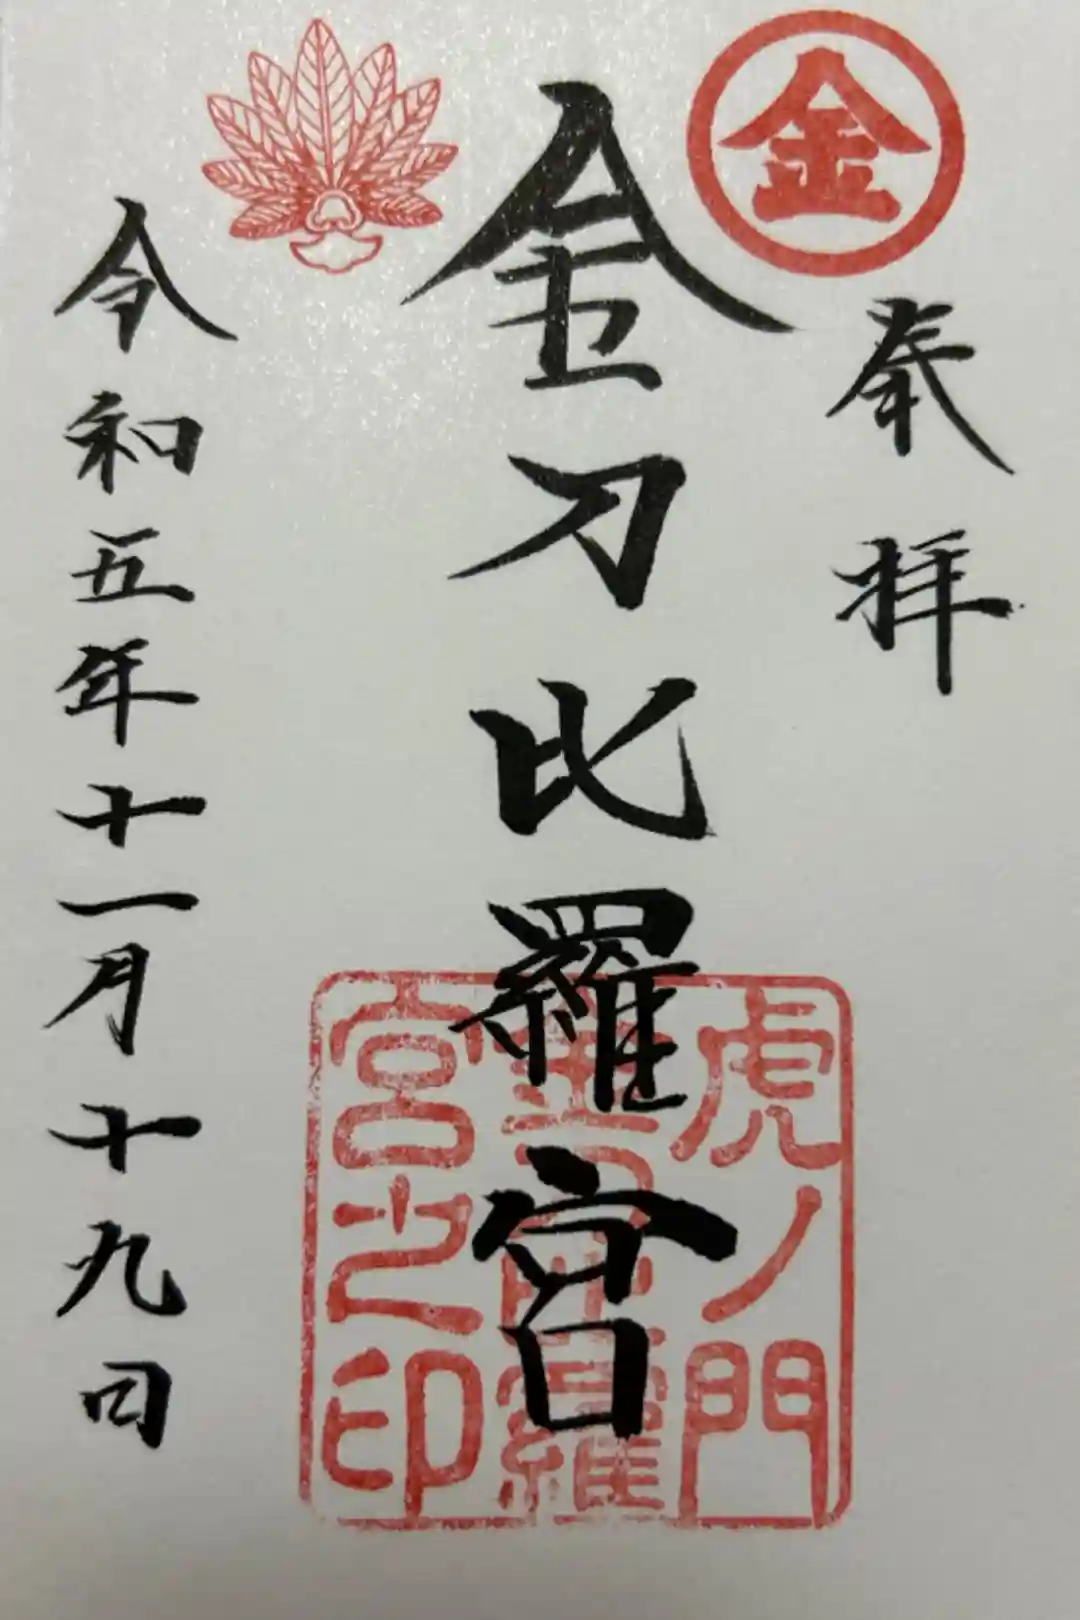 金
奉拝
金刀比羅宮
令和五年十一月十九日
虎ノ門
金刀比羅
宮之印